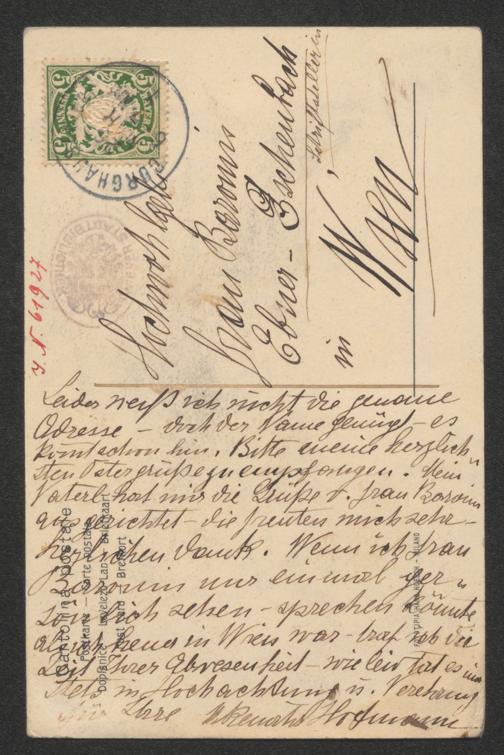 BAYERN
5
5
5
BURGHAUS
Hochwohlgeb
Frau Baronin
Ebner-Eschenbach
Schriftstellerin
in
Wien
J. N. 61927
Leider weiß ich nicht die genaue
Adresse – doch der Name genügt – es
kommt schon hin. Bitte meine herzlich-
sten Ostergrüße zu empfangen. Mein
Vaterl hat mir die Grüße v. Frau Baronin
ausgerichtet – die freuten mich sehr –
herzlichen Dank. Wenn ich Frau
Baronin nur einmal per-
sönlich sehen – sprechen könnte
als ich heuer in Wien war – traf ich die
Zeit Ihrer Abwesenheit – wie leid tat es mir
Stets in Hochachtung u. Verehrung
für Ihre Renata Hofmann
Cartolina postale
Postkarte — Carte postale
Dopisnice – Levelező-Lap – Briefkaart
Post card – Brefkort